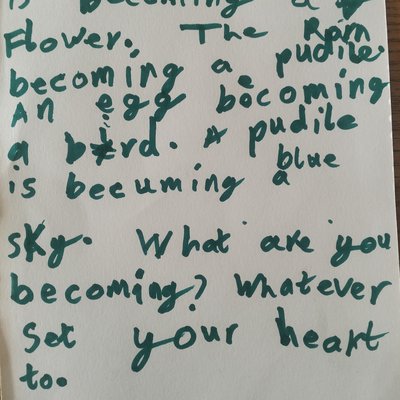 is becoming a
Flower. The Rain
becoming a pudile
An egg becoming
a bird. A pudile
is becuming a blue
sky. What are you
becoming? Whatever
Set your heart
to.